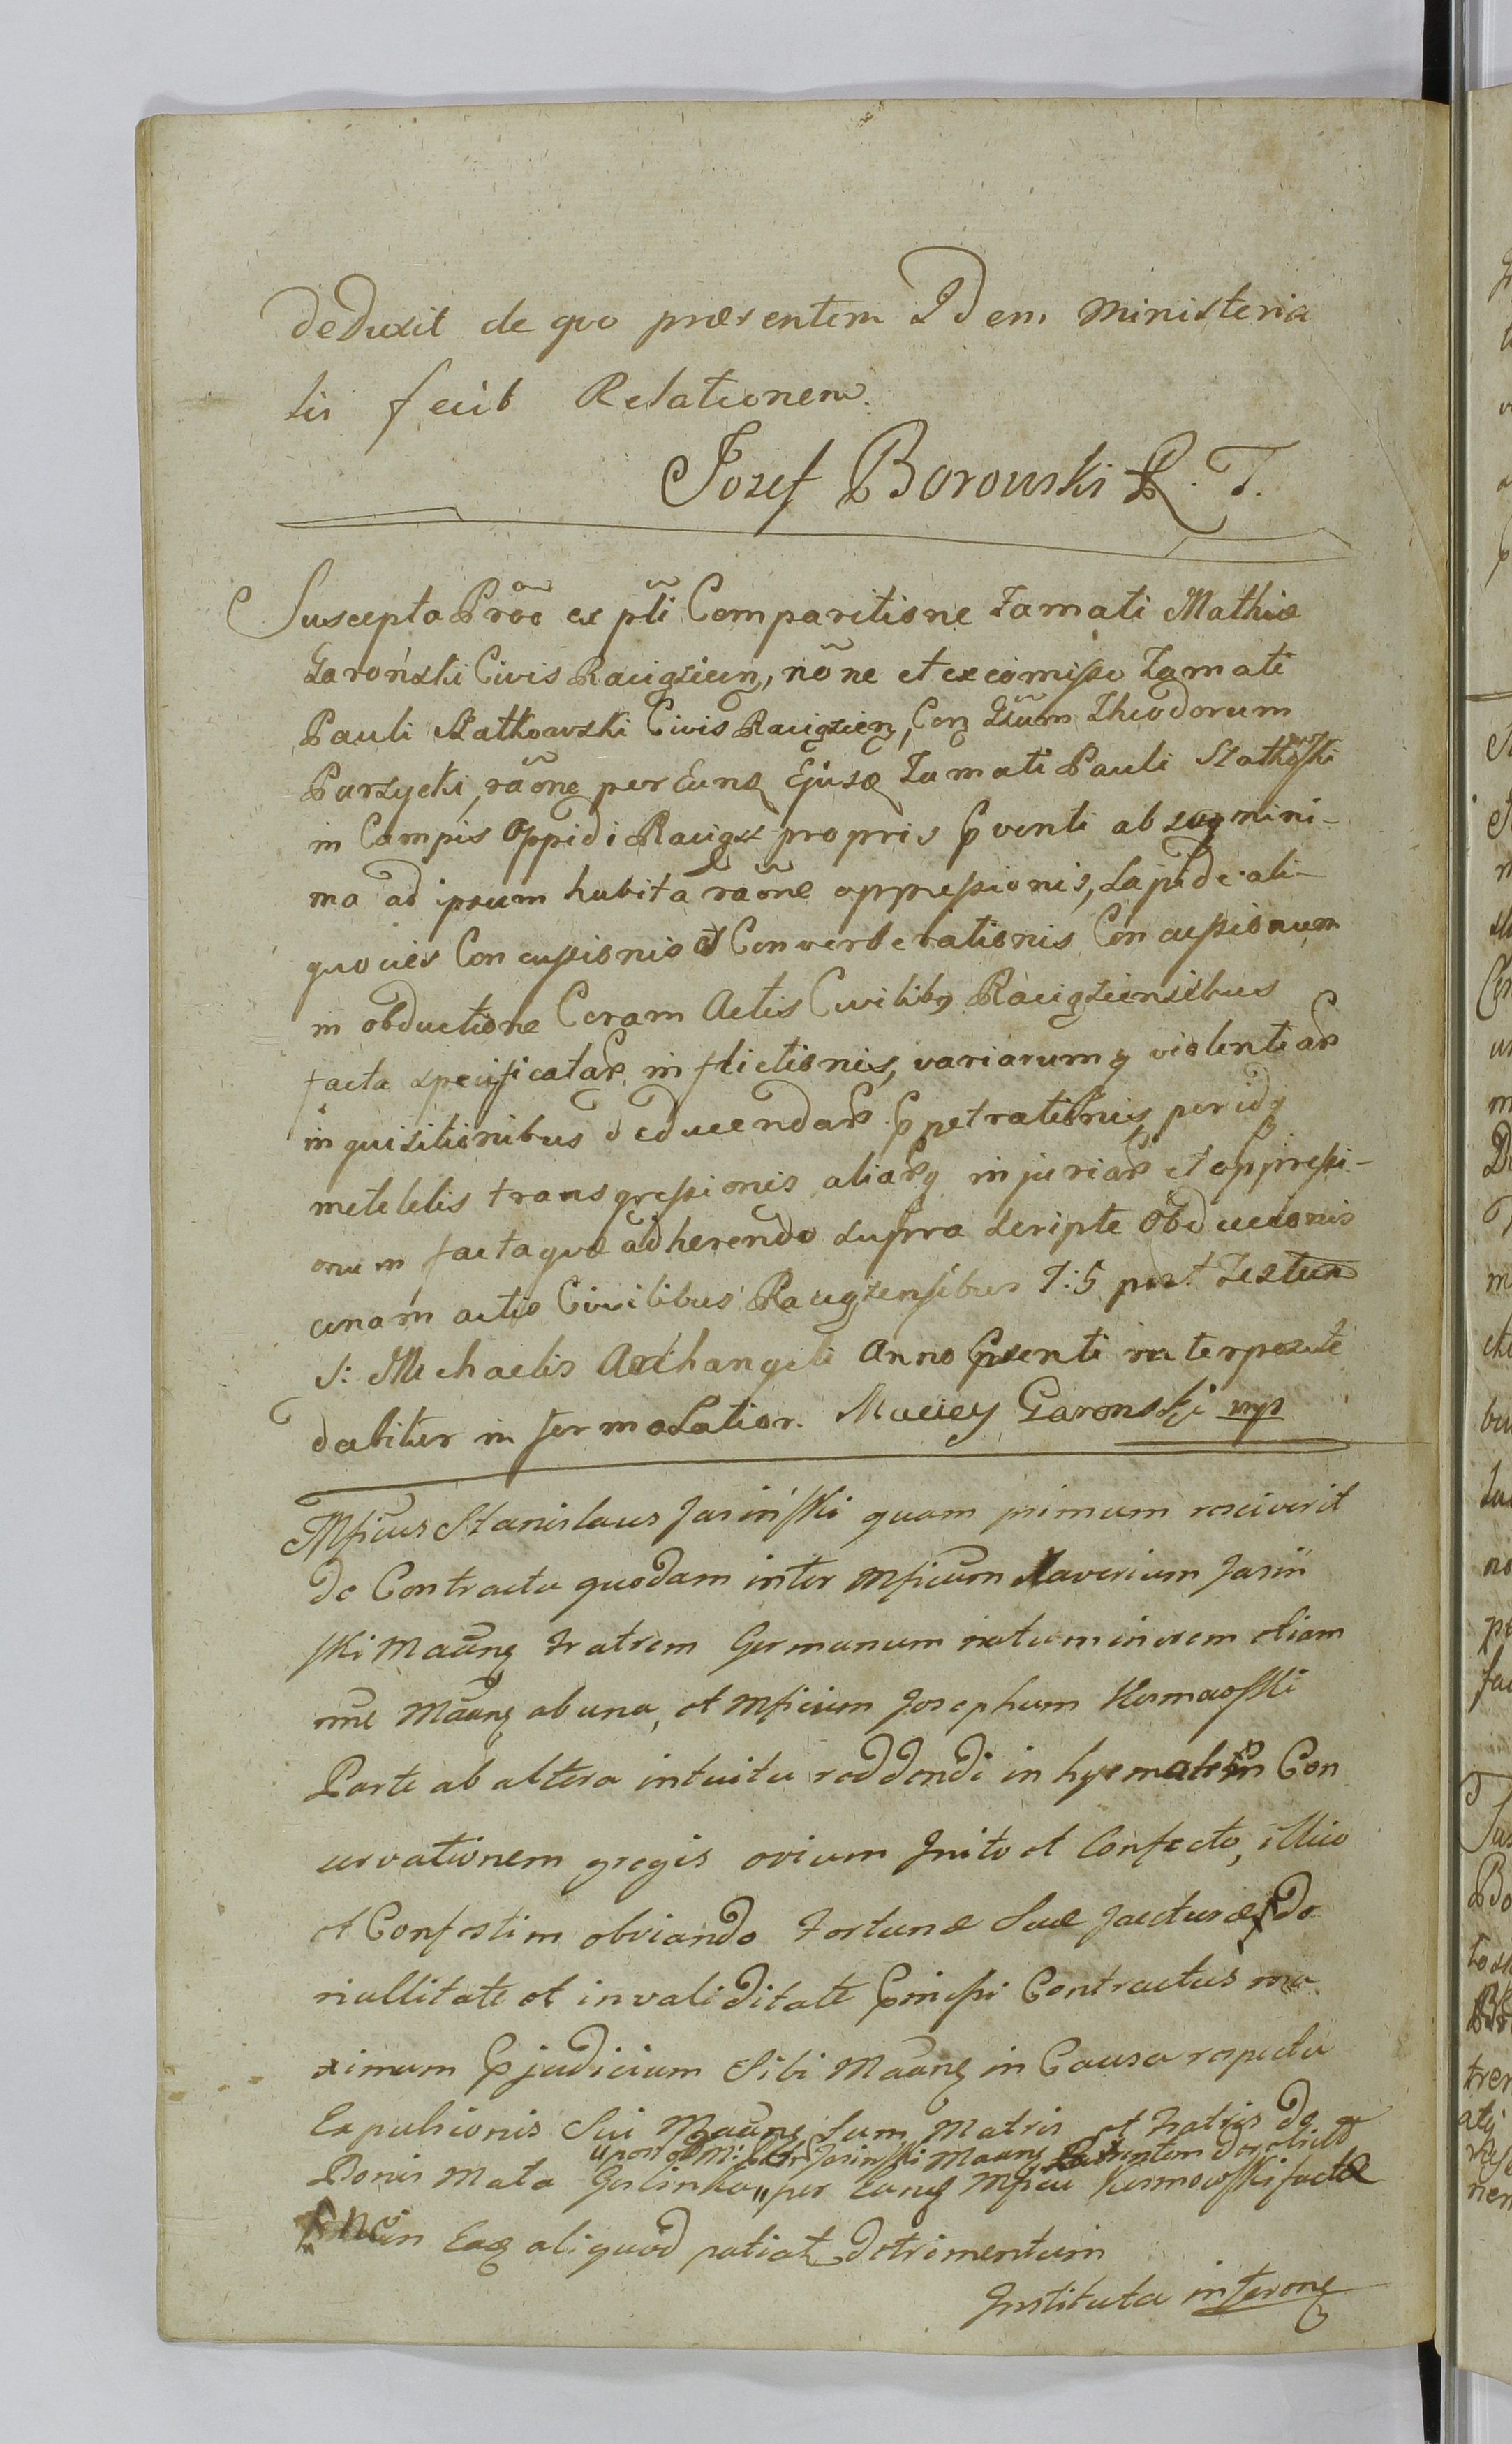 deduxit de quo præsentem Idem Ministeria
lis fecit Relationem.
Jozef Borowski R. T.
Suscepta Prõe ex plĩ Comparitione Famati Mathiæ
Garoński Civis Raciązien, nõne et ex comisso Famati
Pauli Statkowski Civis Raciązien, Con Gsum Theodorum
Parzycki, raõne per Eund Ejusd Famati Pauli Statkowski
in Campis Oppidi Raciąż propris pventi ab mini-
ma ad ipsum habita raõne oppressionis, Lapide ali-
quovies Concussionis et Converberationis Concussionum
in obductione Coram Actis Civilibq Raciążiensibus
facta specificatar inflictionis, variarumq violentiar
inquisitionibus deducendar ppetrationis, per idq
metelelis transgressionis aliarq injuriar et oppressi-
onum factaquæ adherendo supra scripte Obduccionis
coram actis Civilibus Raciążensibus F: 5 post Festum
S: Michaelis Archangeli Anno psenti interposite
dabitur in forma Latior. Maciey Garonski mp
Mficus Stanislaus Jasiński quam primum resciverit
de Contractu quodam inter Mficum Xaverium Jasiń
ski Maũng Fratrem Germanum natu minorem etiam
nne Maũng ab una, et Mficum Josephum Kosmowski
Parte ab altera intuitu reddendi in hyemalem Con
servationem gregis ovium Inito et Confecto, illico
et Confestim obviando Fortunæ Suæ Jacturæ, de
nullitate et invaliditate pmissi Contractus ma
ximum pjudicium Sibi Maũng in Causa respectu
Expulsionis Sui Maũng tum Matris et Fratris de
upon et M: Jasinski Maung
Bonis Mała per Eung Mficu Kosmowski factæ
in Eaq aliquod patiat detrimentum
Instituta interone